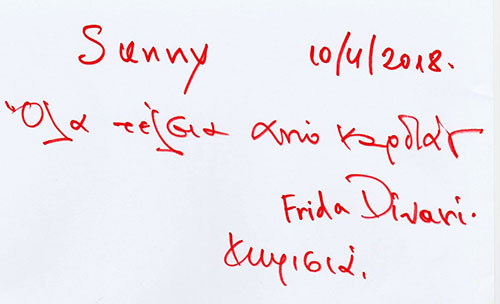 Sunny 10/4/2018.
Όλα τέλεια από καρδιάς
Frida Divari.
Κηφισιά.